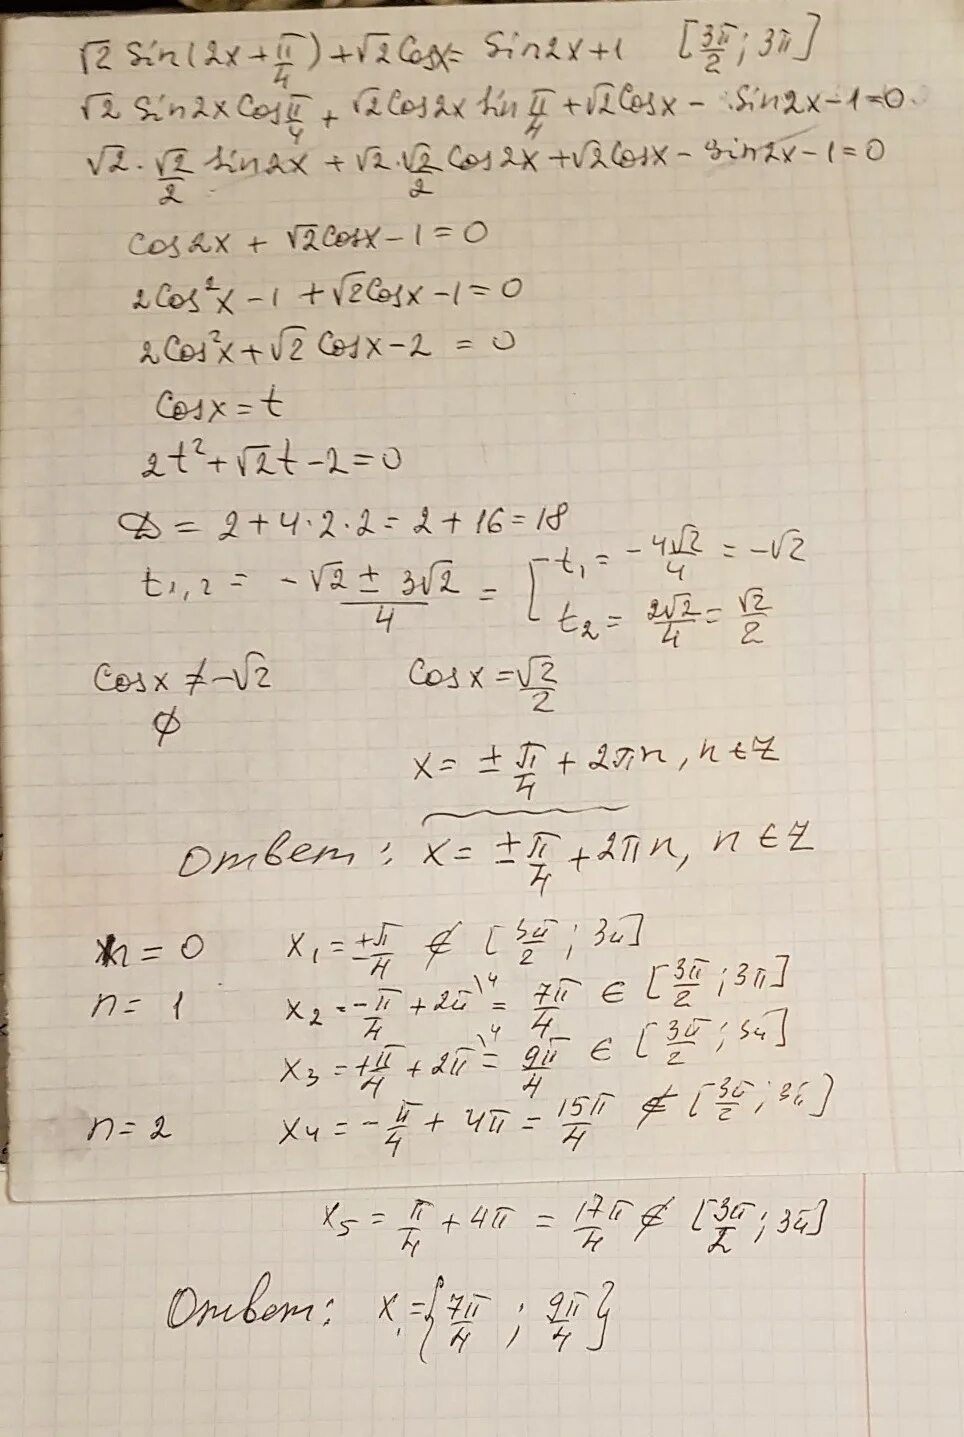 √2 sin(2x + π/4) + √2 cosx = sin2x + 1 [3π/2 ; 3π]
√2 sin2x cos π/4 + √2 cos2x sin π/4 + √2 cosx - sin2x - 1 = 0
√2 · √2/2 sin2x + √2 · √2/2 cos2x + √2 cosx - sin2x - 1 = 0
cos2x + √2 cosx - 1 = 0
2cos²x - 1 + √2 cosx - 1 = 0
2cos²x + √2 cosx - 2 = 0
cosx = t
2t² + √2t - 2 = 0
D = 2 + 4·2·2 = 2 + 16 = 18
t₁,₂ = (-√2 ± 3√2)/4 = [ t₁ = -4√2/4 = -√2
t₂ = 2√2/4 = √2/2
cosx ≠ -√2 cosx = √2/2
∅
x = ± π/4 + 2πn, n ∈ Z
Ответ: x = ± π/4 + 2πn, n ∈ Z
n = 0 x₁ = ±π/4 ∉ [3π/2 ; 3π]
n = 1 x₂ = -π/4 + 2π\4 = 7π/4 ∈ [3π/2 ; 3π]
x₃ = +π/4 + 2π\4 = 9π/4 ∈ [3π/2 ; 3π]
n = 2 x₄ = -π/4 + 4π = 15π/4 ∉ [3π/2 ; 3π]
x₅ = π/4 + 4π = 17π/4 ∉ [3π/2 ; 3π]
Ответ: x = {7π/4 ; 9π/4}